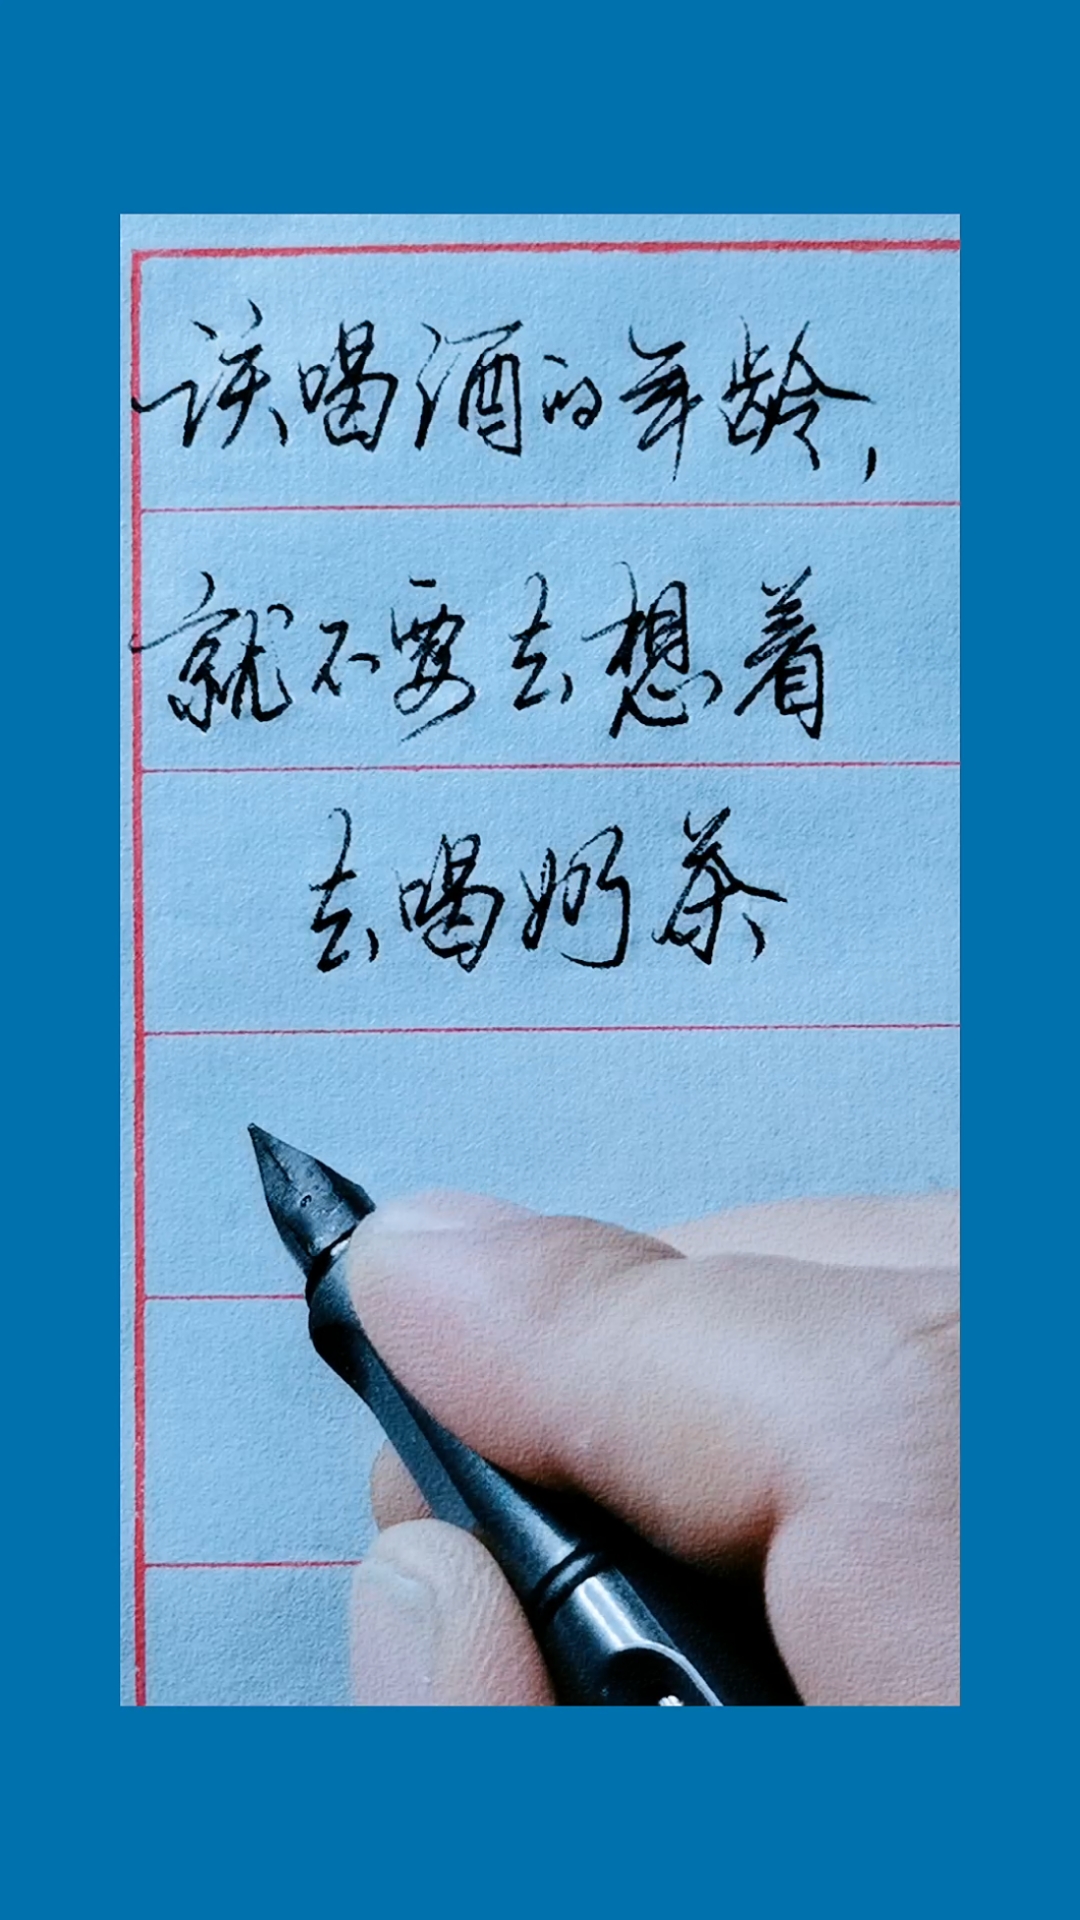 该喝酒的年龄，
就不要去想着
去喝奶茶